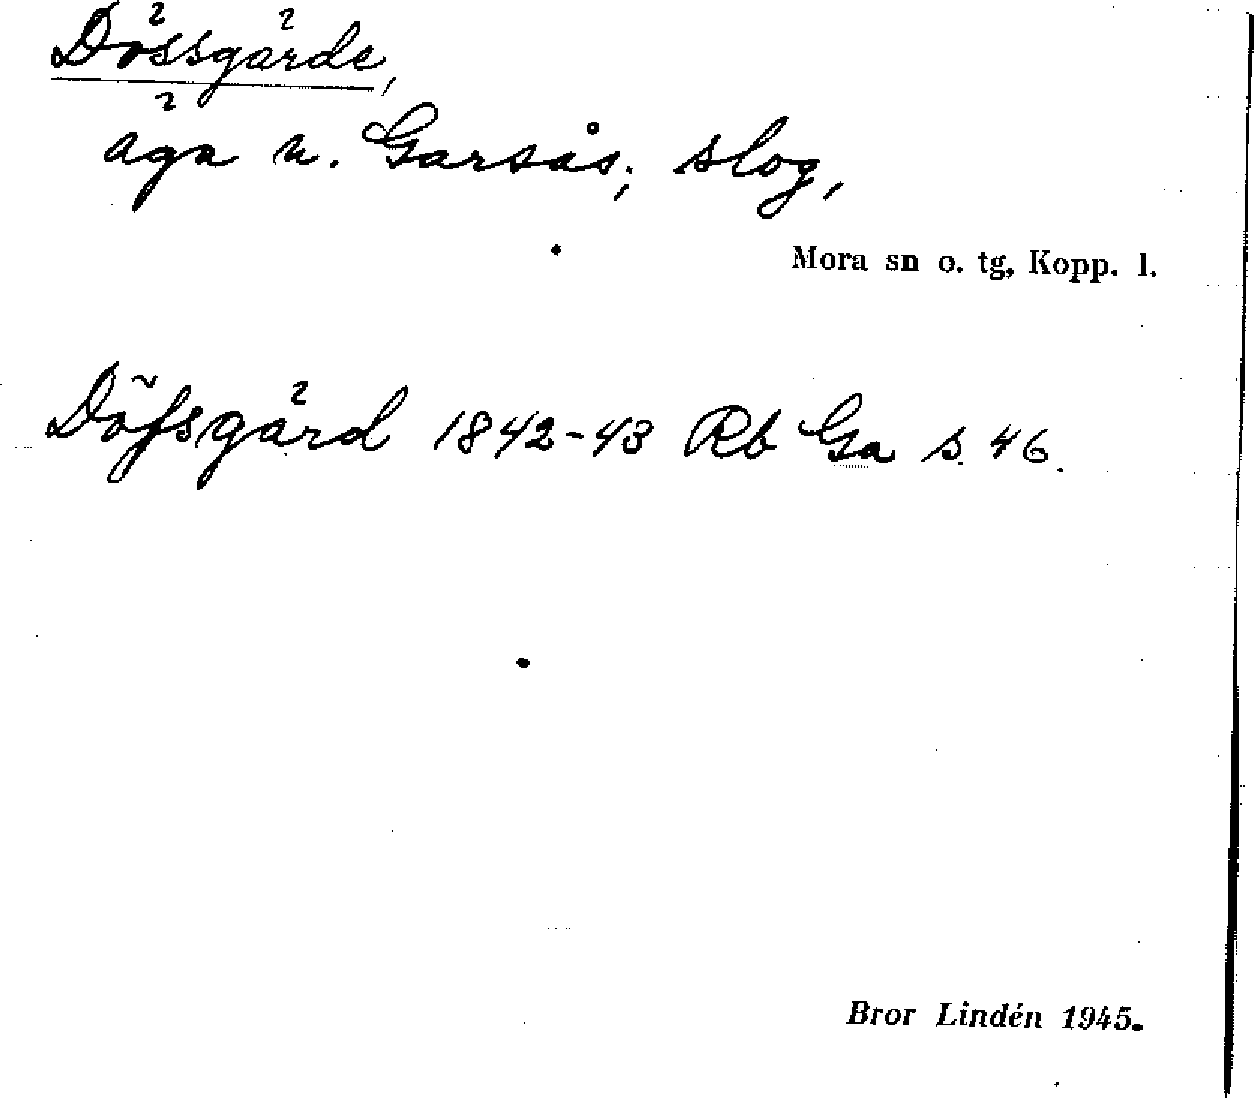 Dössgärde,
äga n. Garsås; slog,
Mora sn o. tg, Kopp. l.
Döfsgärd 1842-43 Rb Ga s. 46.
Bror Lindén 1945.